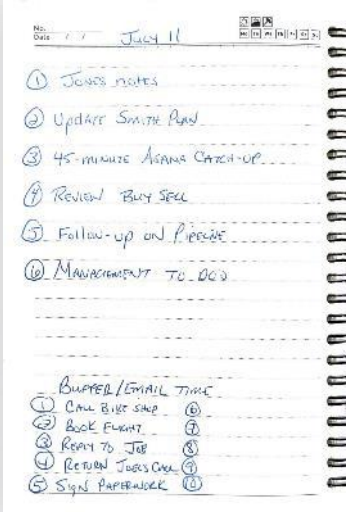 No.
Date / /
July 11
Mo Tu We Th Fr Sa Su
① JONES NOTES
② UPDATE SMITH PLAN
③ 45-MINUTE ASANA CATCH-UP
④ REVIEW BUY SELL
⑤ Follow-up ON PIPELINE
⑥ MANAGEMENT TO DOS
BUFFER/EMAIL TIME
① CALL BIKE SHOP ⑥
② BOOK FLIGHT ⑦
③ REPLY TO JOB ⑧
④ RETURN JOEL'S CALL ⑨
⑤ SIGN PAPERWORK ⑩